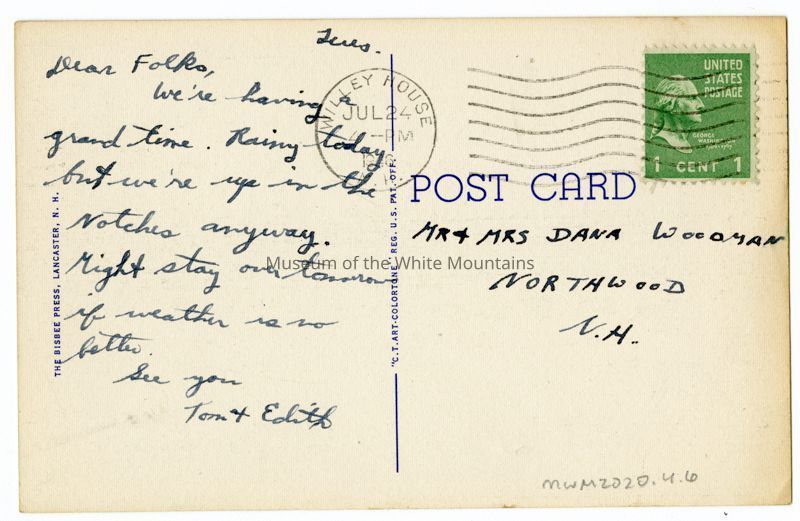 Tues.
Dear Folks,
We're having a
grand time. Rainy today
but we're up in the
Notches anyway.
Might stay over tomorrow
if weather is no
better.
See you
Tom & Edith
THE BISBEE PRESS, LANCASTER, N. H.
"C.T. ART-COLORTONE" REG. U.S. PAT. OFF.
WILLEY HOUSE
JUL 24
-PM
UNITED
STATES
POSTAGE
GEORGE
WASHINGTON
1 CENT 1
POST CARD
MR & MRS DANA WOODMAN
NORTHWOOD
N.H.
Museum of the White Mountains
MWM2020.4.6